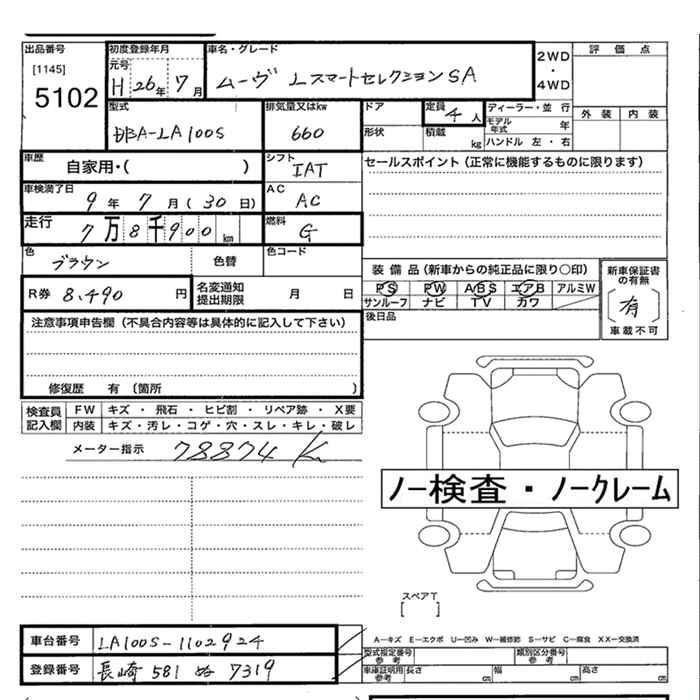 出品番号
[1145]
5102
初度登録年月
元号
H 26年 7月
車名・グレード
ムーヴ Lスマートセレクション SA
2WD
・
4WD
評価点
外装 内装
型式
DBA-LA100S
排気量又はkw
660
ドア
形状
定員
4人
積載 kg
ディーラー・並行
モデル年式 年
ハンドル 左・右
車歴
自家用・( )
シフト
IAT
車検満了日
9年 7月 (30日)
AC
AC
走行
7万8千900km
燃料
G
セールスポイント(正常に機能するものに限ります)
色
ブラウン
色替
色コード
R券 8,490円
名変通知
提出期限
月 日
装備品(新車からの純正品に限り○印)
PS PW ABS エアB アルミW
サンルーフ ナビ TV カワ
後日品
新車保証書
の有無
有
車載不可
注意事項申告欄(不具合内容等は具体的に記入して下さい)
修復歴 有 (箇所 )
検査員
記入欄
FW キズ・飛石・ヒビ割・リペア跡・X要
内装 キズ・汚レ・コゲ・穴・スレ・キレ・破レ
メーター指示 78874 K
ノー検査・ノークレーム
スペアT
[ ]
車台番号 LA100S-1102924
登録番号 長崎 581 ぬ 7319
A―キズ E―エクボ U―凹み W―補修跡 S―サビ C―腐食 XX―交換済
型式指定番号
参考
類別区分番号
参考
車庫証明用
参考
長さ cm 幅 cm 高さ cm